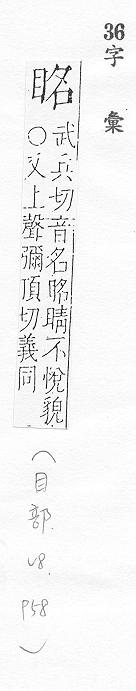 36
字彙
眳
武兵切音名眳睛不悅貌
○又上聲彌頂切義同
(目部.
U8.
P58
)